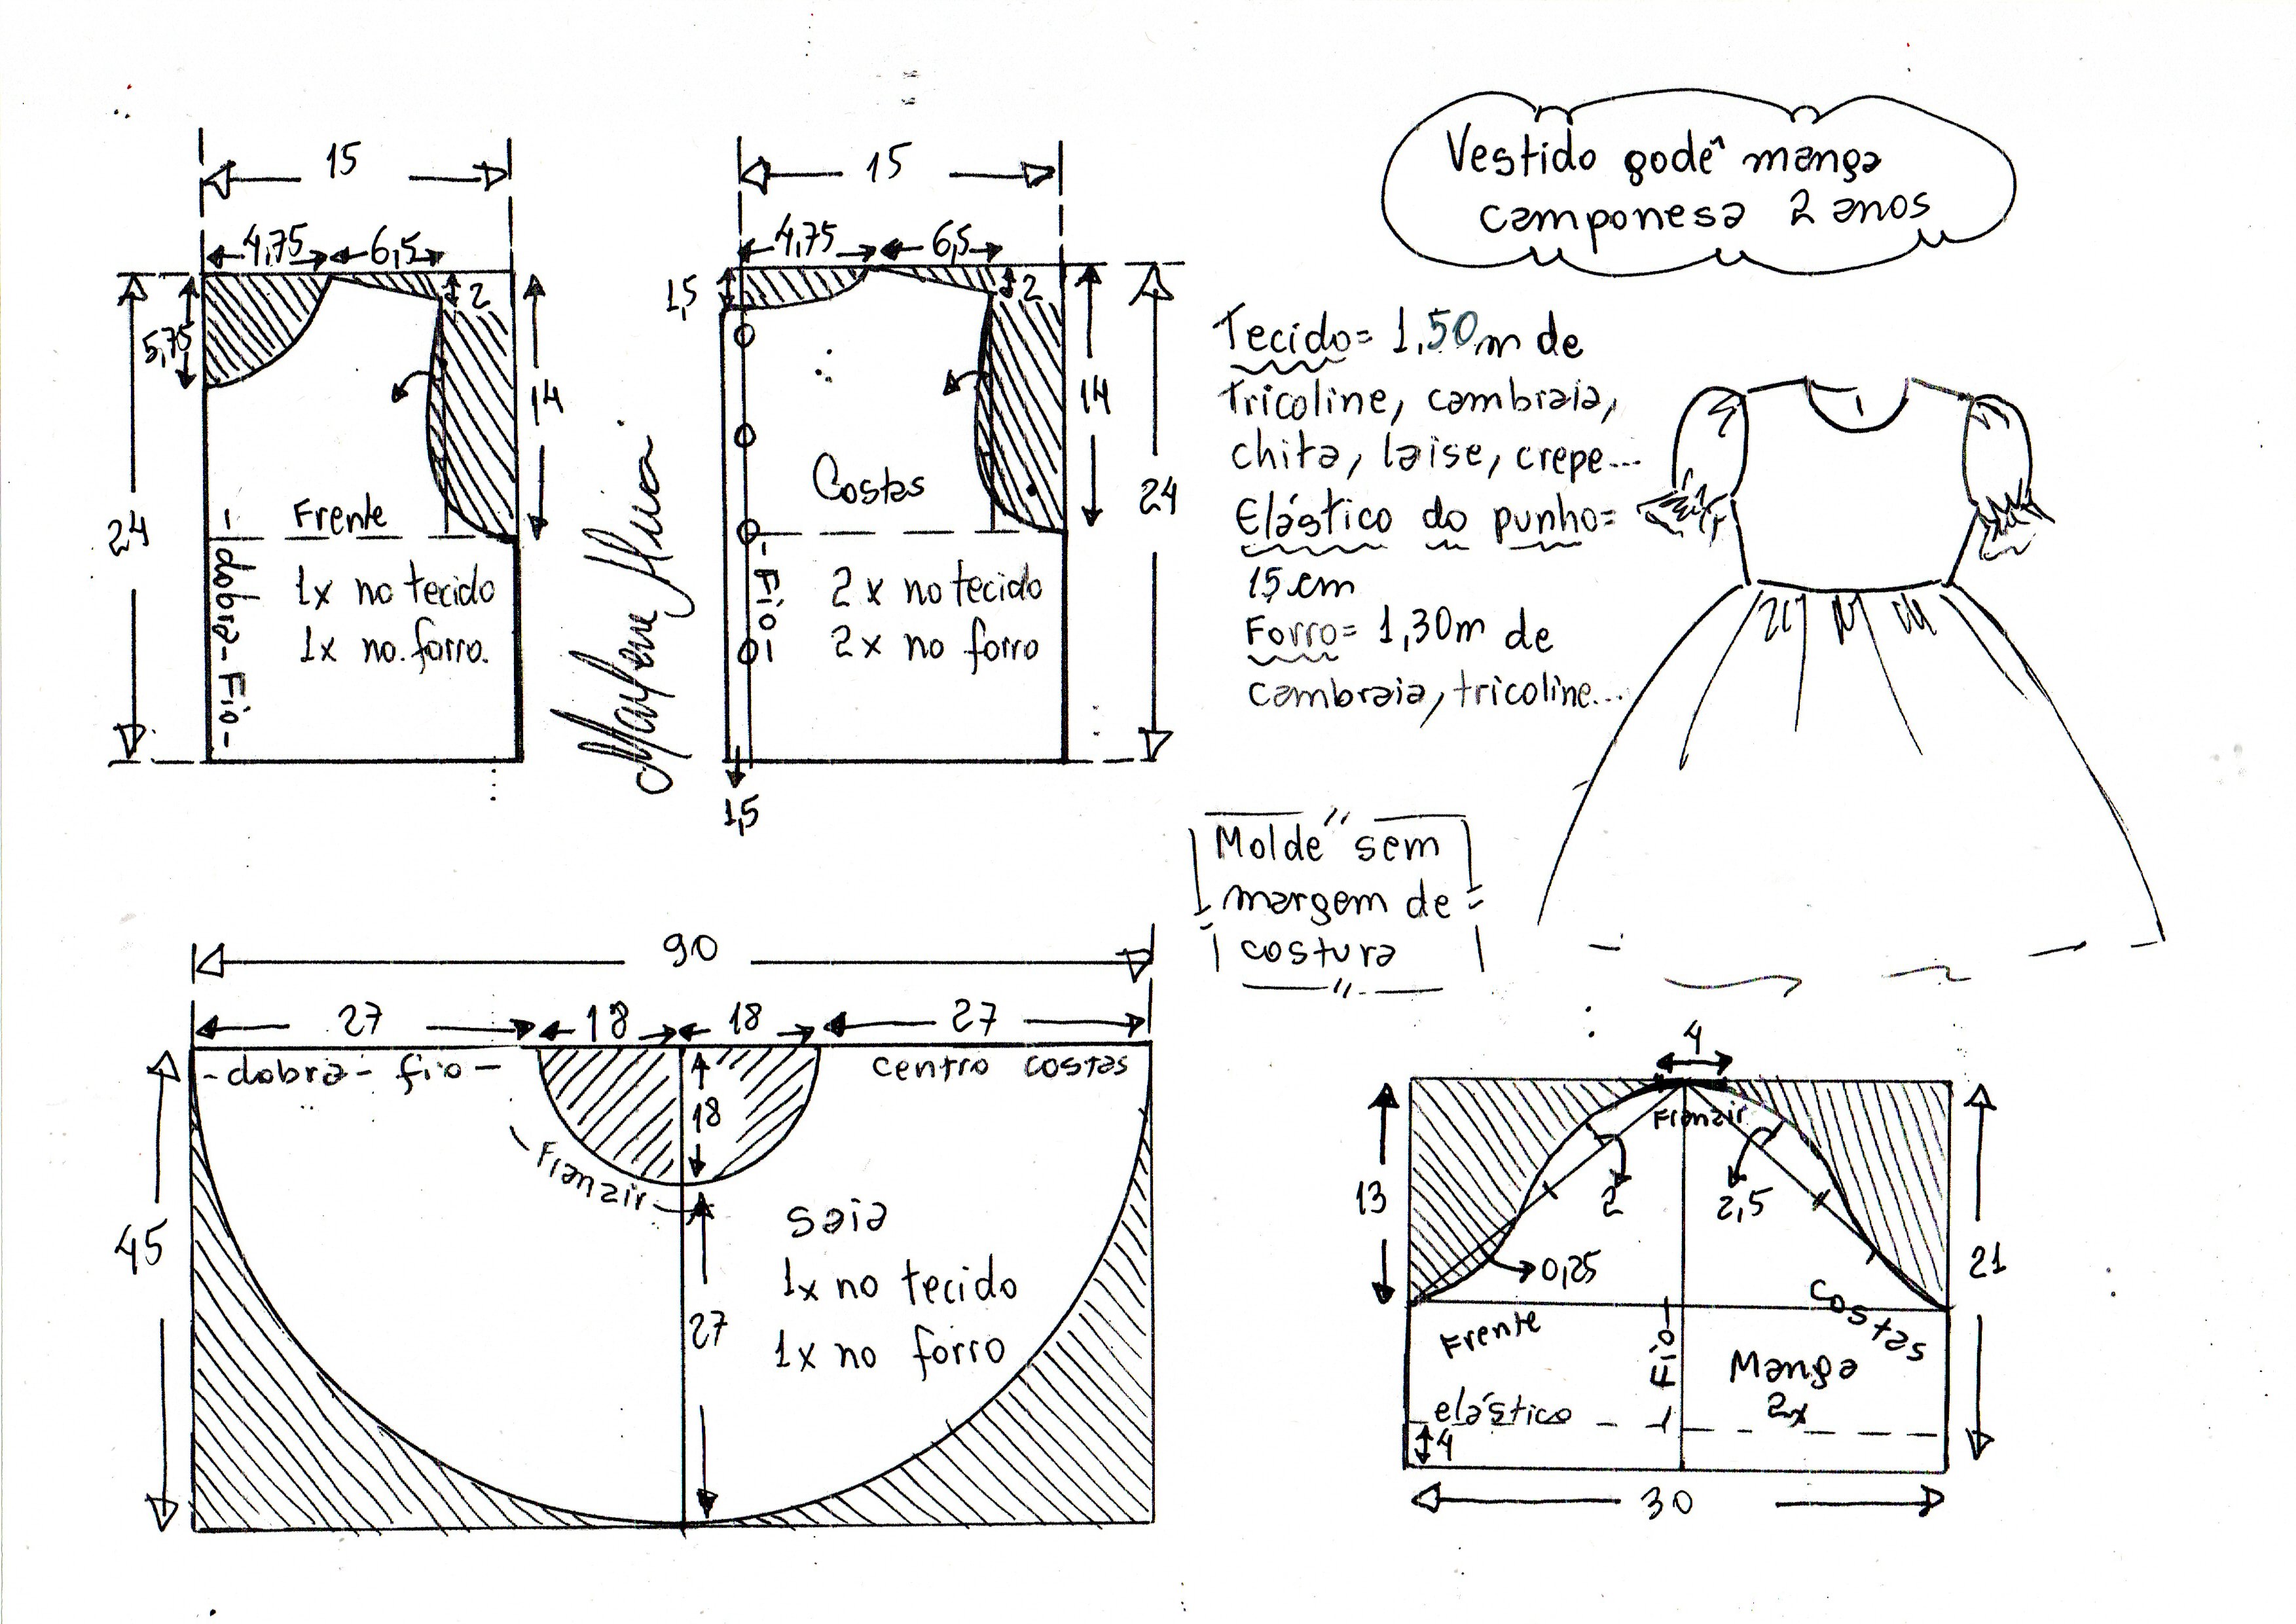 Vestido godê manga
camponesa 2 anos
15
4,75 6,5
2
5,75
14
24
Frente
1x no tecido
1x no. forro.
- dobra - Fio -
15
4,75 6,5
1,5
2
14
24
Costas
2x no tecido
2x no forro
- Fio -
1,5
Tecido= 1,50m de
tricoline, cambraia,
chita, laise, crepe...
Elástico do punho=
15cm
Forro= 1,30m de
cambraia, tricoline...
Molde sem
margem de
costura
90
27 18 18 27
- dobra - fio -
centro costas
18
- Franzir -
45
27
saia
1x no tecido
1x no forro
4
Franzir
13
2
2,5
0,25
21
Frente
Costas
- Fio -
Manga
2x
elástico
4
30